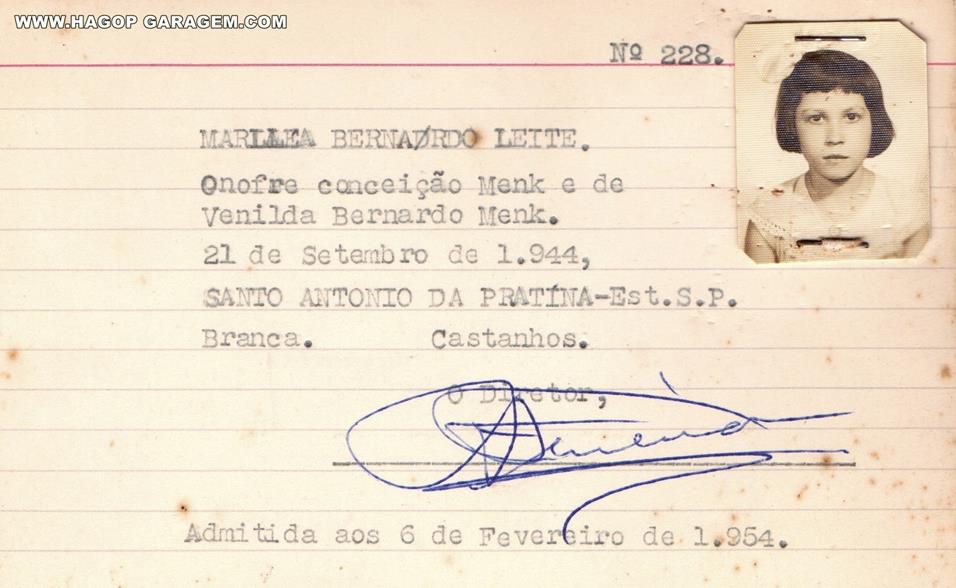 WWW.HAGOP GARAGEM.COM
Nº 228.
BERNARDO LEITE.
Onofre conceição Menk e de
Venilda Bernardo Menk.
21 de Setembro de 1.944,
SANTO ANTONIO DA PRATÍNA-Est.S.P.
Branca. Castanhos.
O Diretor,
Admitida aos 6 de Fevereiro de 1.954.